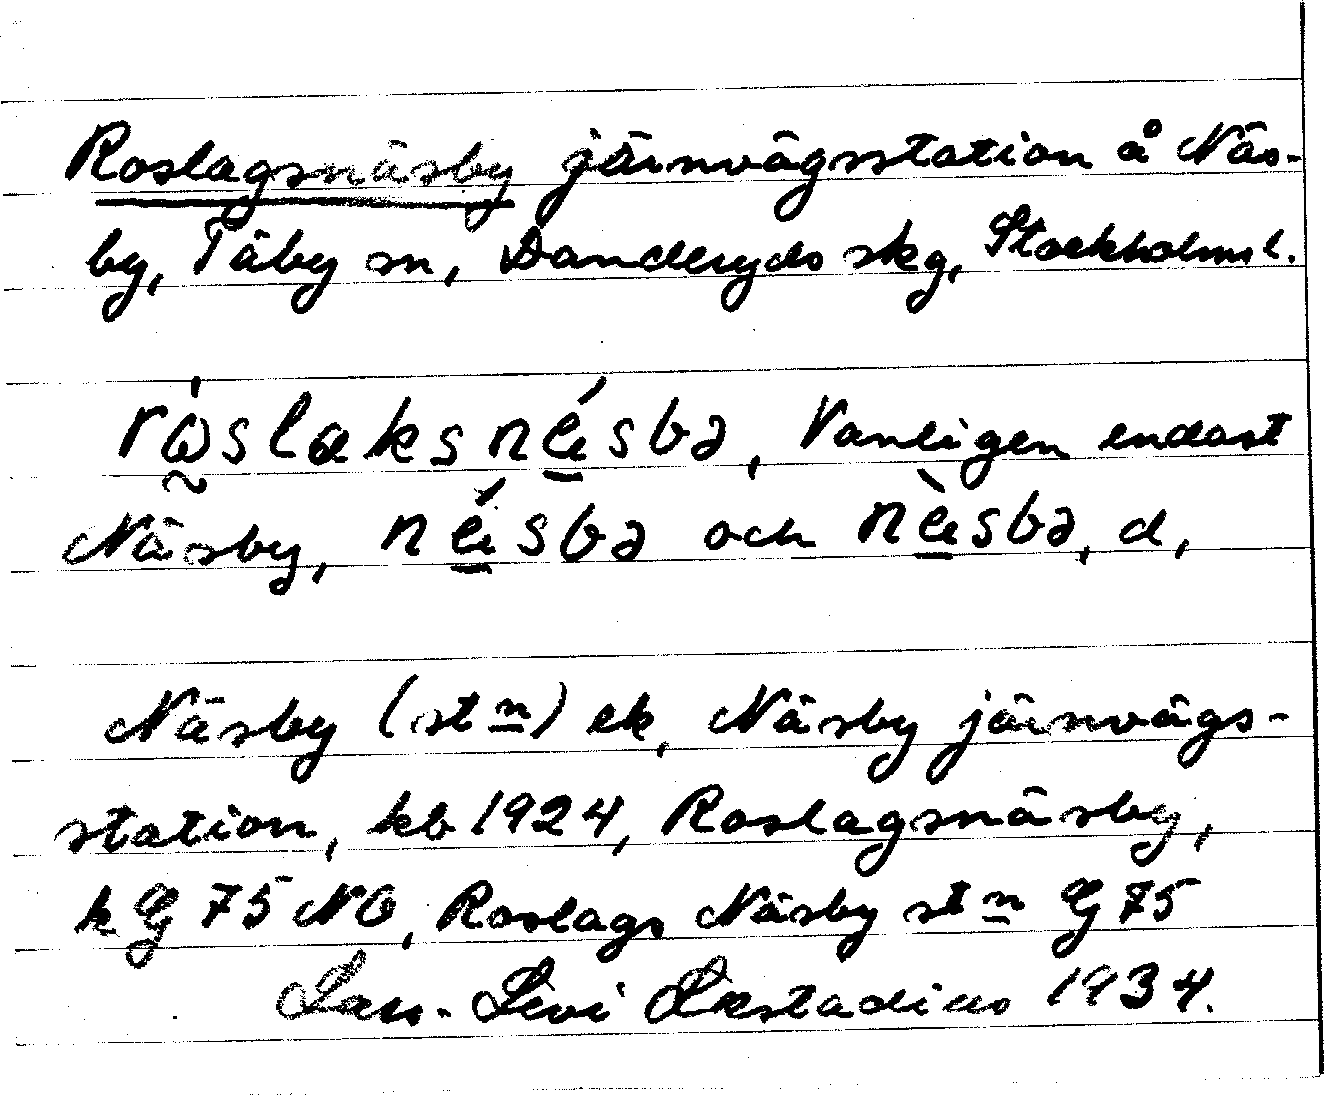 Roslagsnäsby järnvägsstation å Näs-
by, Täby sn, Danderyds skg, Stockholms l.
ró̰slaksnǽ̱sbə, Vanligen endast
Näsby, nǽ̱sbə och næ̱̀sbə, d,
Näsby (stn) ek, Näsby järnvägs-
station, kb 1924, Roslagsnäsby,
k G 75 NO, Roslags Näsby stn G 75
Lars-Levi Læstadius 1934.